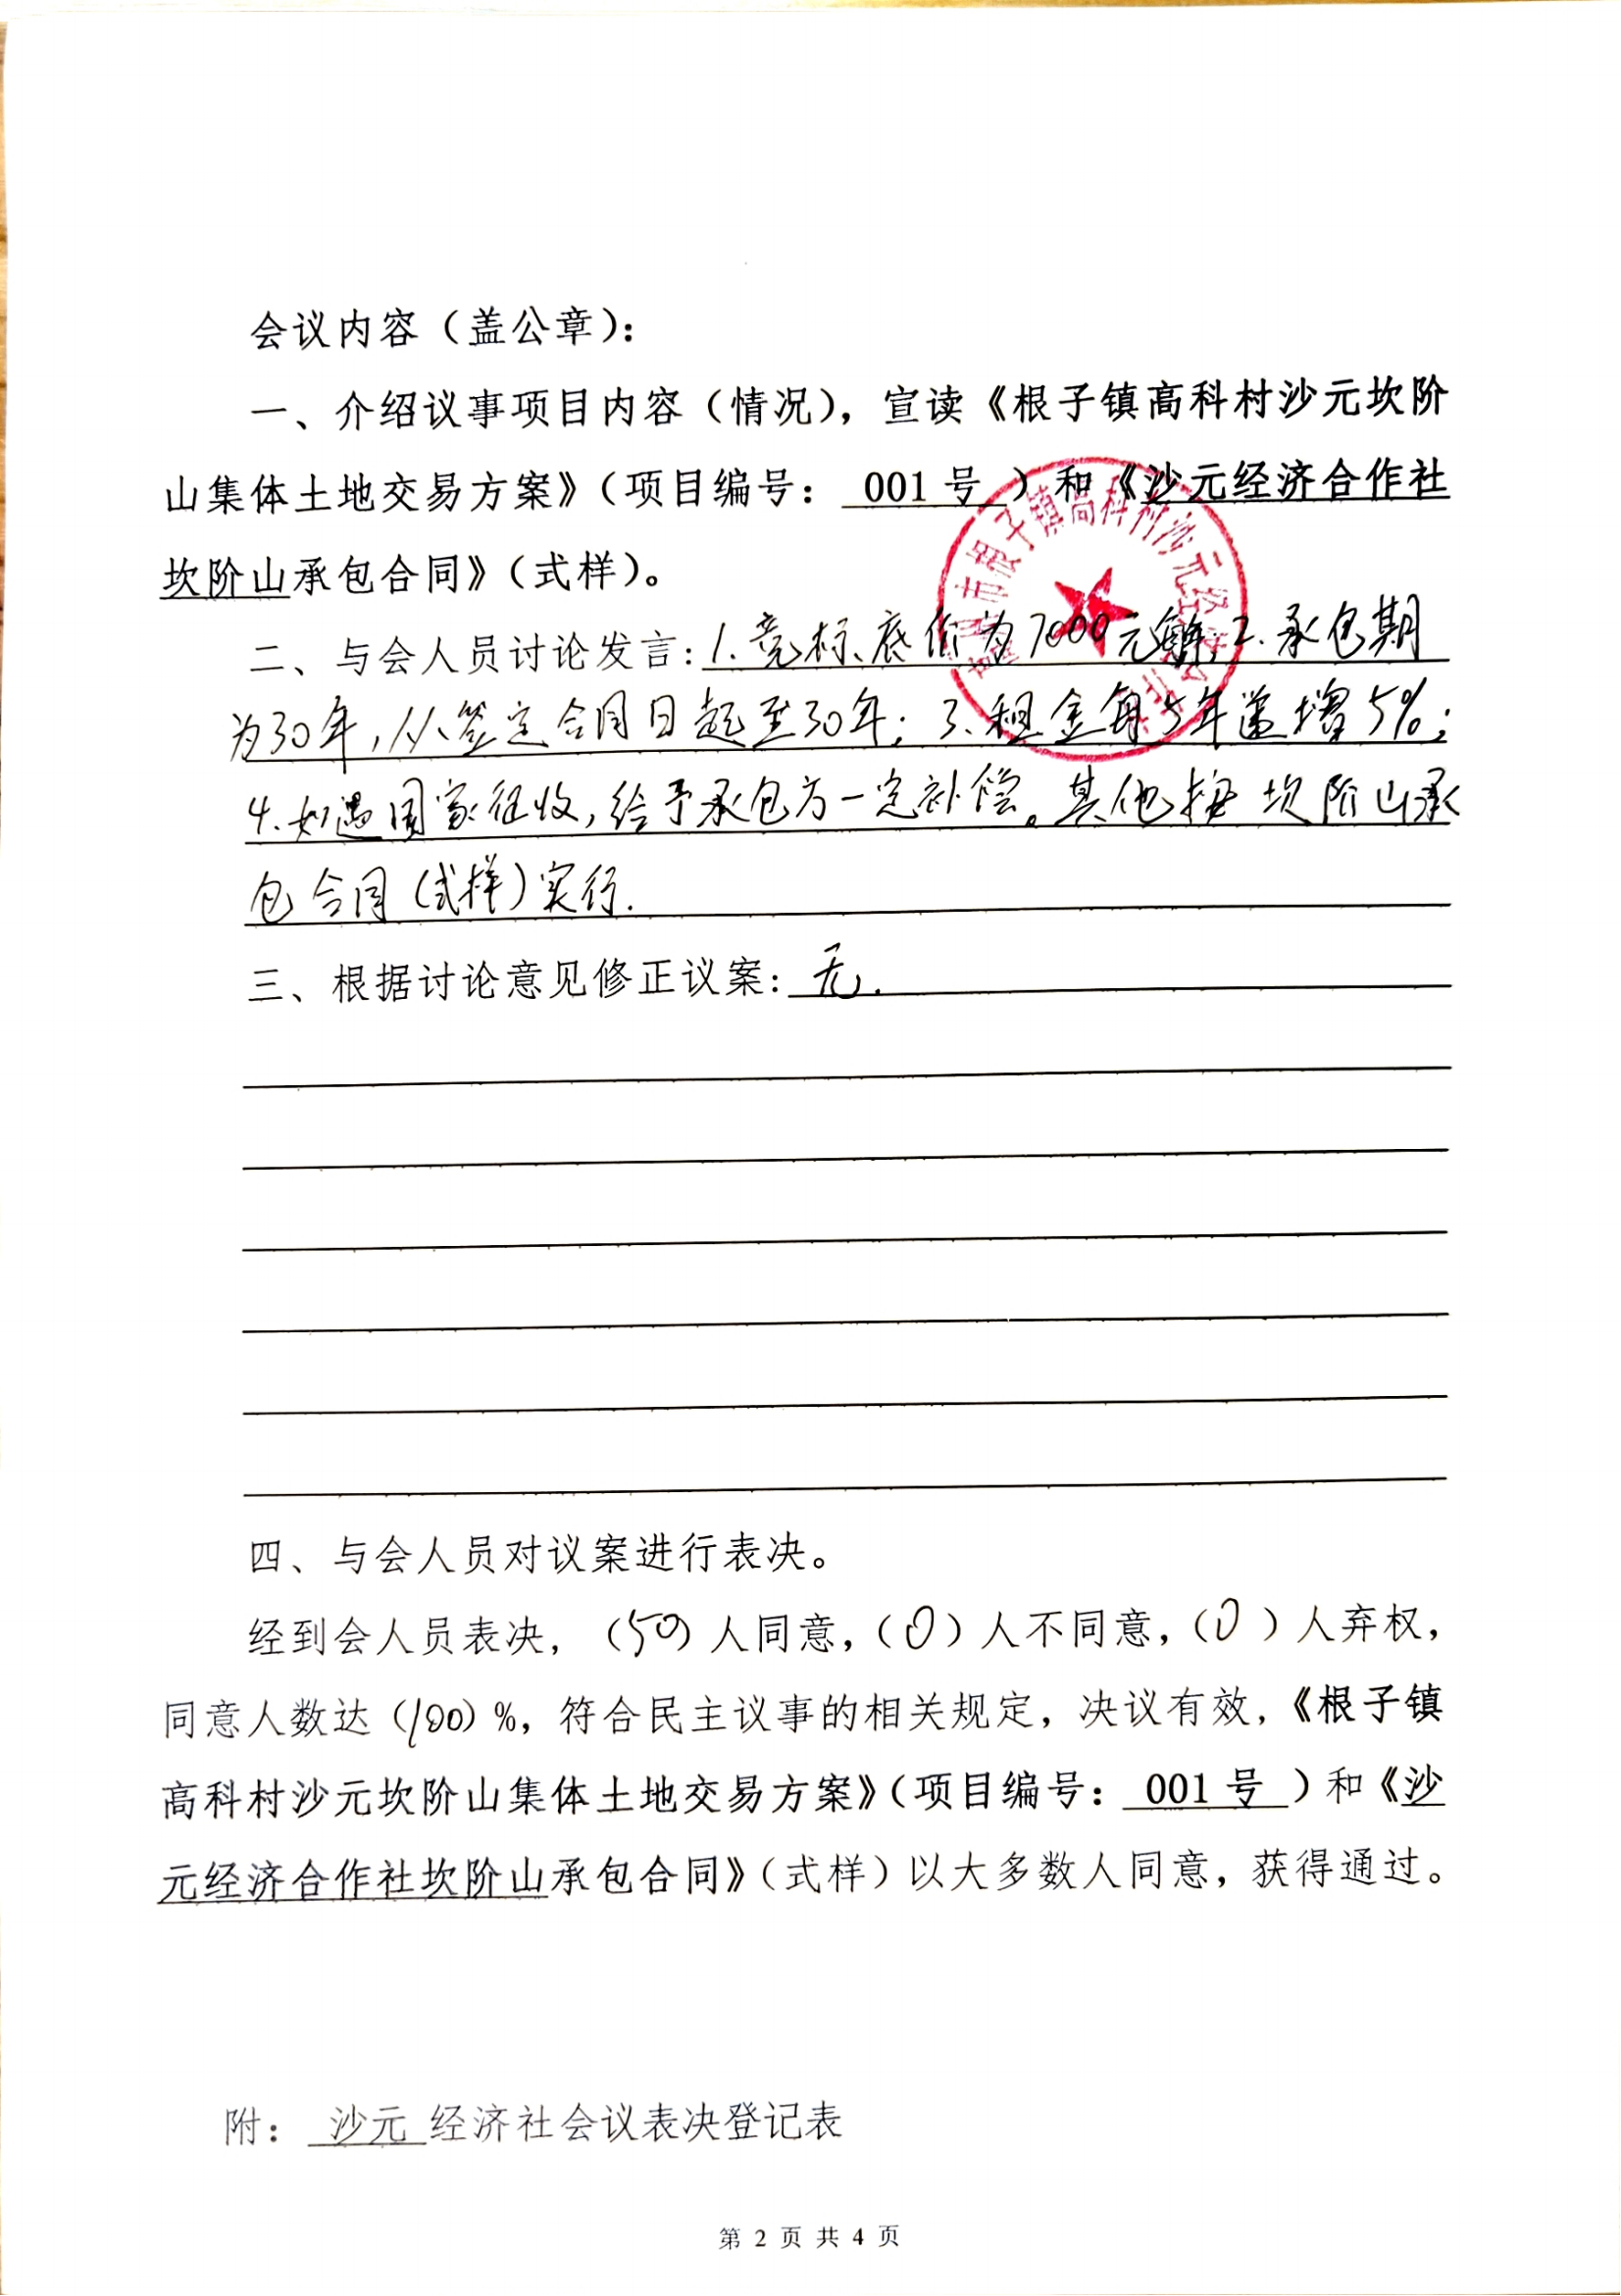 会议内容（盖公章）：
一、介绍议事项目内容（情况），宣读《根子镇高科村沙元坎阶
山集体土地交易方案》（项目编号： 001 号 ）和《沙元经济合作社
坎阶山承包合同》（式样）。
二、与会人员讨论发言：1.竞标底价为7000元/年;2.承包期
为30年,从签定合同日起至30年;3.租金每5年递增5%;
4.如遇国家征收,给予承包方一定补偿。其他按坎阶山承
包合同(式样)实行.
三、根据讨论意见修正议案：无.
四、与会人员对议案进行表决。
经到会人员表决，（50）人同意，（0）人不同意，（0）人弃权，
同意人数达（100）%，符合民主议事的相关规定，决议有效，《根子镇
高科村沙元坎阶山集体土地交易方案》（项目编号： 001 号 ）和《沙
元经济合作社坎阶山承包合同》（式样）以大多数人同意，获得通过。
附： 沙元 经济社会议表决登记表
第 2 页 共 4 页
市根子镇高科村沙元经济合作社